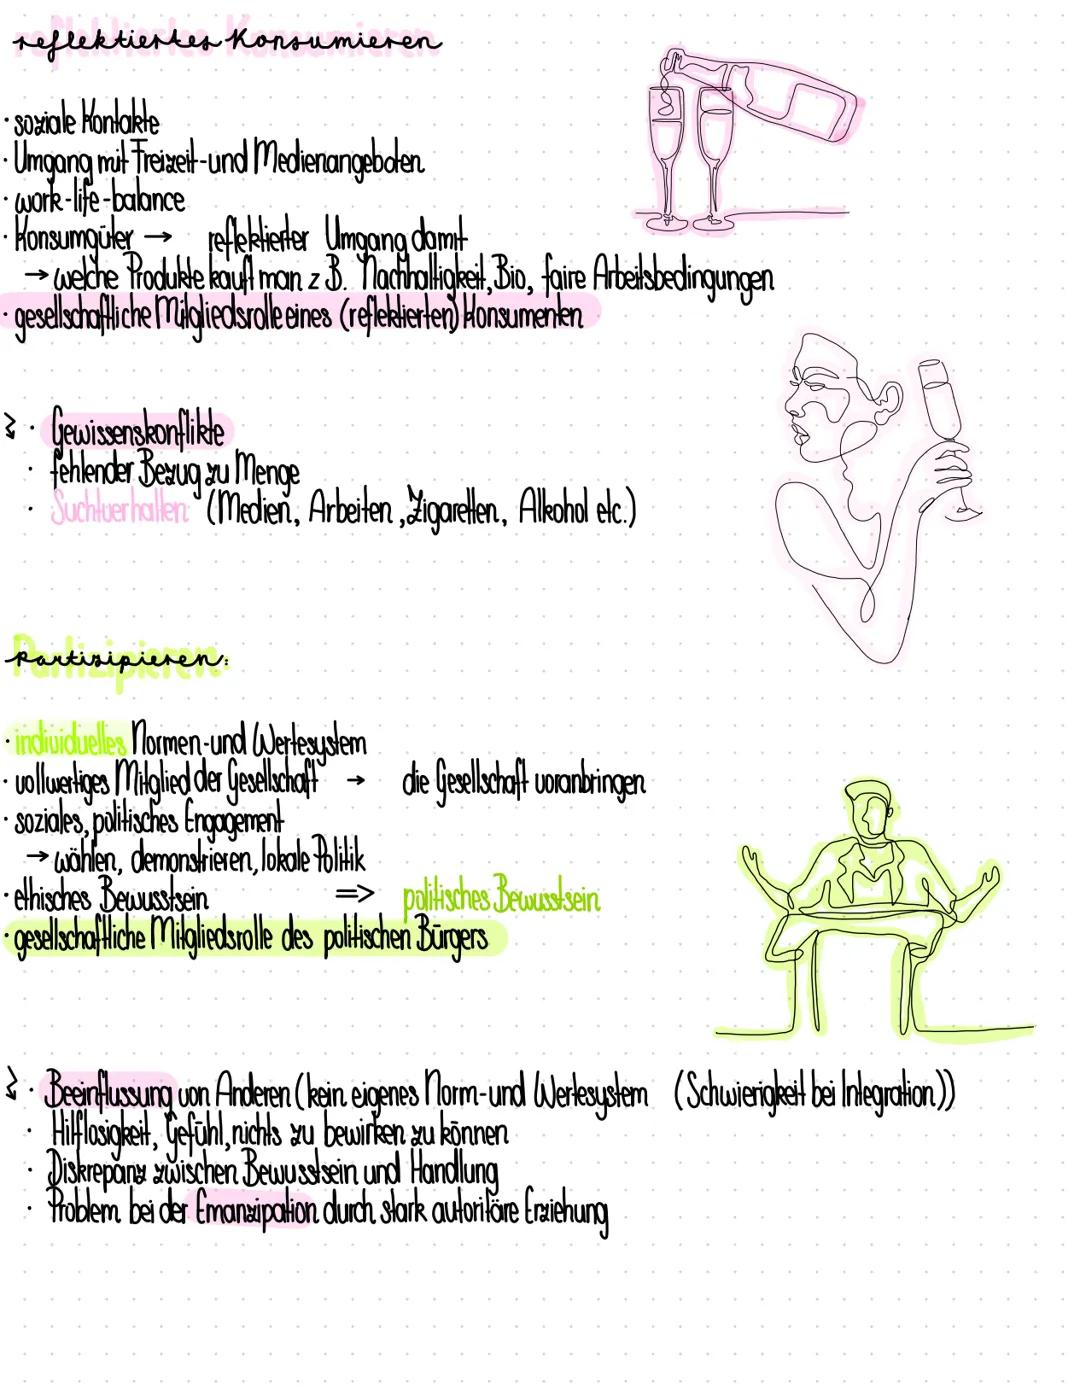 reflektiertes Konsumieren
· soziale Kontakte
· Umgang mit Freizeit-und Medienangeboten
· work-life-balance
· Konsumgüter → reflektierter Umgang damit
→ welche Produkte kauft man z.B. Nachhaltigkeit, Bio, faire Arbeitsbedingungen
· gesellschaftliche Mitgliedsrolle eines (reflektierten) Konsumenten
· Gewissenskonflikte
· fehlender Bezug zu Menge
· Suchtverhalten (Medien, Arbeiten, Zigaretten, Alkohol etc.)
Partizipieren:
· individuelles Normen-und Wertesystem
· vollwertiges Mitglied der Gesellschaft → die Gesellschaft voranbringen
· soziales, politisches Engagement
→ wählen, demonstrieren, lokale Politik
· ethisches Bewusstsein => politisches Bewusstsein
· gesellschaftliche Mitgliedsrolle des politischen Bürgers
· Beeinflussung von Anderen (kein eigenes Norm-und Wertesystem (Schwierigkeit bei Integration))
· Hilflosigkeit, Gefühl, nichts zu bewirken zu können
· Diskrepanz zwischen Bewusstsein und Handlung
· Problem bei der Emanzipation durch stark autoritäre Erziehung